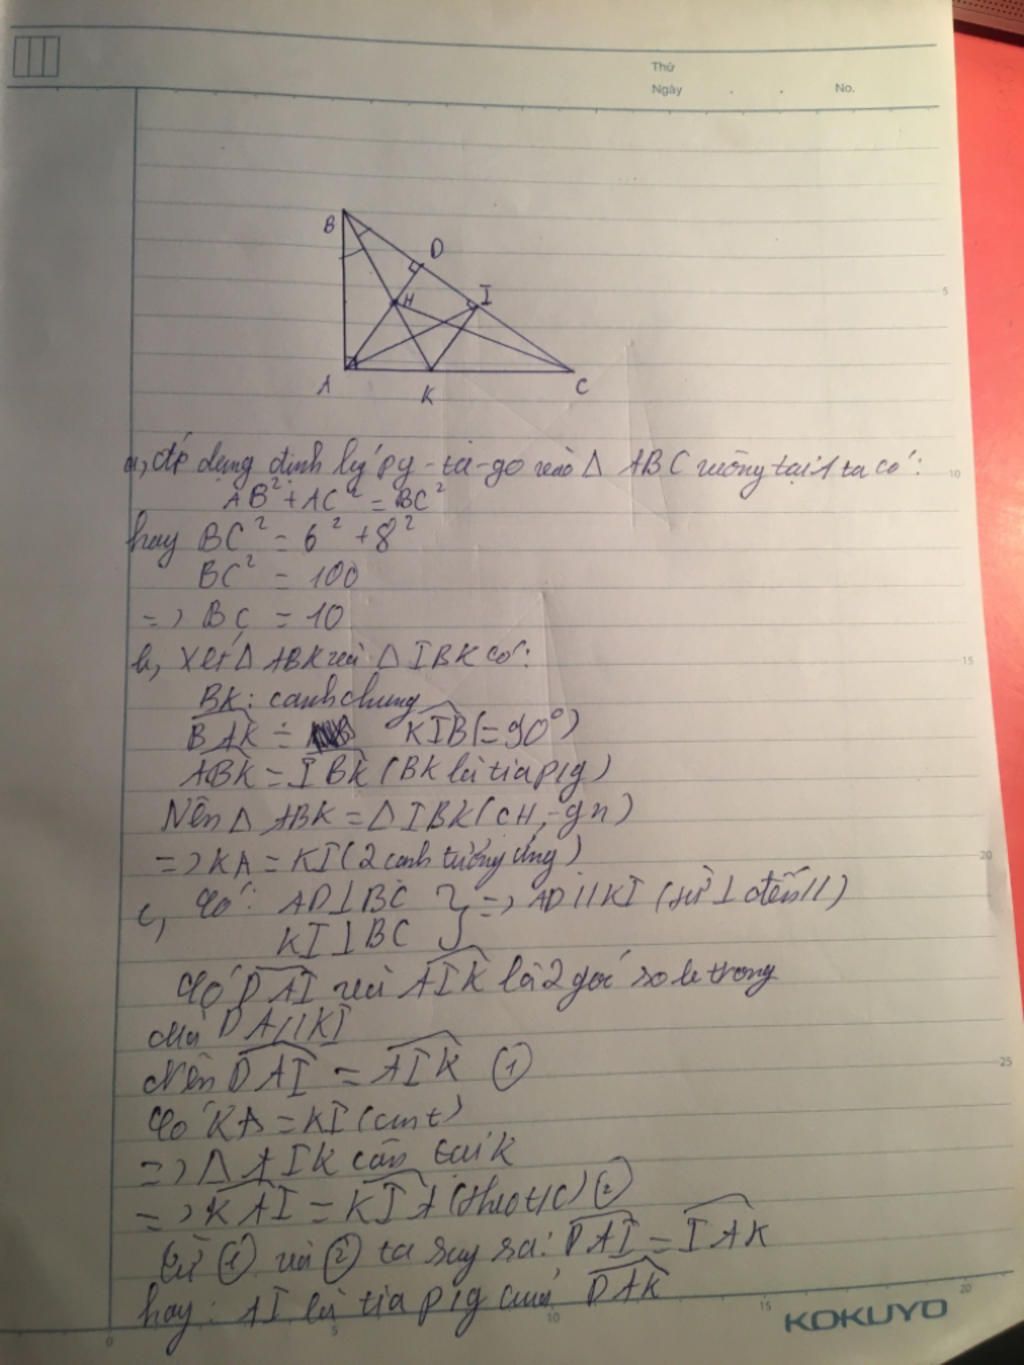 Thứ
Ngày . . No.
B
D
H
I
A
K
C
5
a, Áp dụng định lý py-ta-go vào Δ ABC vuông tại A ta có:
10
AB² + AC² = BC²
hay BC² = 6² + 8²
BC² = 100
=> BC = 10
b, Xét Δ ABK và Δ IBK có:
15
BK: cạnh chung
BAK = KIB (= 90°)
ABK = IBK (BK là tia p/g)
Nên Δ ABK = Δ IBK (CH-gn)
=> KA = KI (2 cạnh tương ứng)
20
c, Có: AD⊥BC } => AD // KI (từ ⊥ đến //)
KI⊥BC
Có DAI và AIK là 2 góc so le trong
Mà DA // KI
Nên DAI = AIK (1)
25
Có KA = KI (cmt)
=> Δ AIK cân tại K
=> KAI = KIA (theo t/c) (2)
Từ (1) và (2) ta suy ra: DAI = IAK
hay: AI là tia p/g của DAK
0 5 10 15 20
KOKUYO